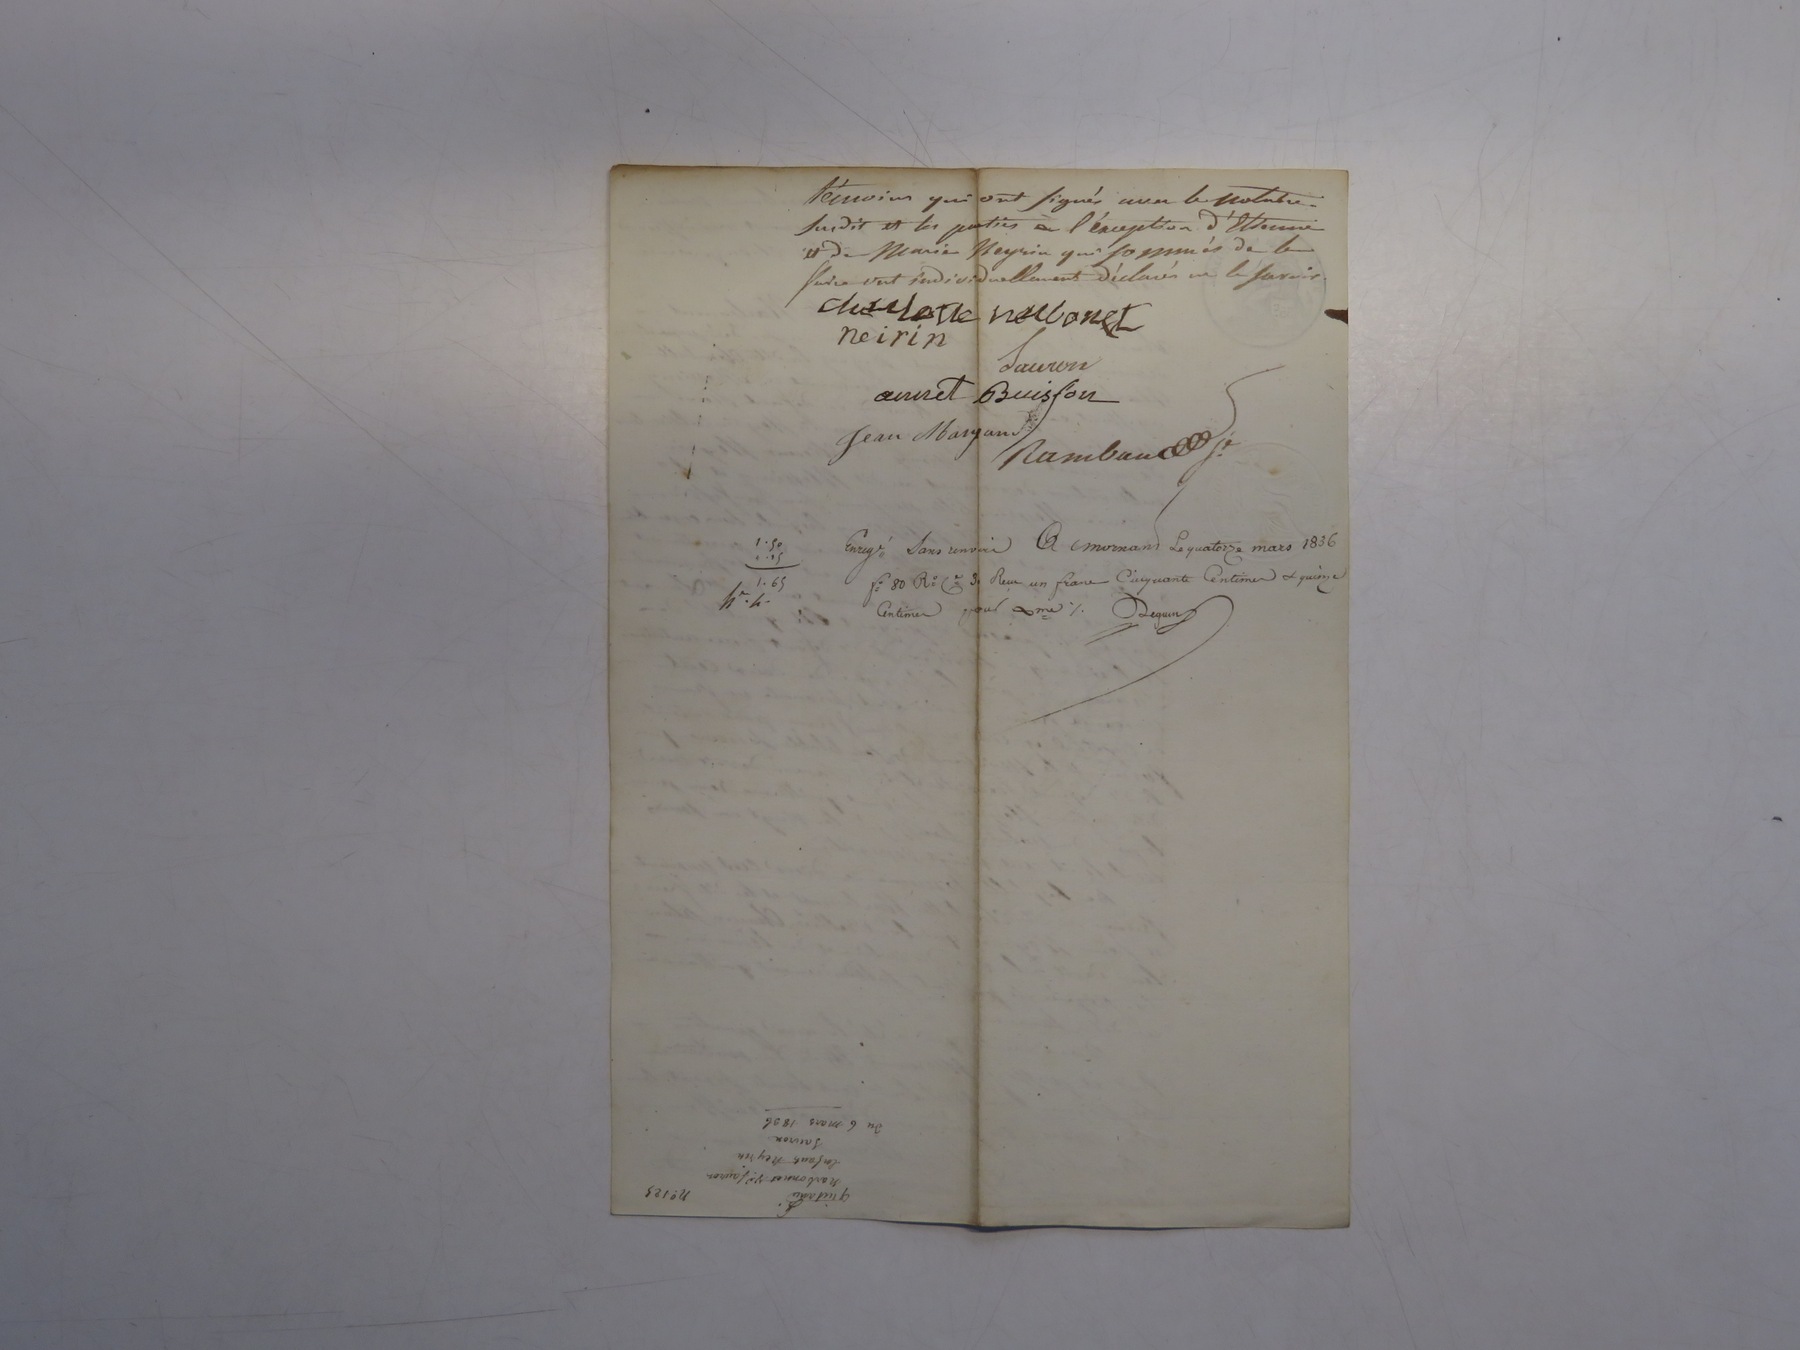 témoins qui ont signés avec le notaire
susdit et les parties à l'éxception d'Etienne
et de Marie Neyrin qui sommés de le
faire ont individuellement déclarés ne le savoir.
charlotte narbonet
neirin
Sauron
auret Buisson
Jean Marjan
Rambaud
1.50
0.15
1.65
Enregé Sans renvoi A mornant Le quatorze mars 1836
fo 80 Ro Ce 3 Reçu un franc Cinquante Centimes & quinze
Centimes pour Dequin
No 125
quittance
Narbonnet Ve Sauron
Enfants Neyrin
Sauron
Du 6 mars 1836